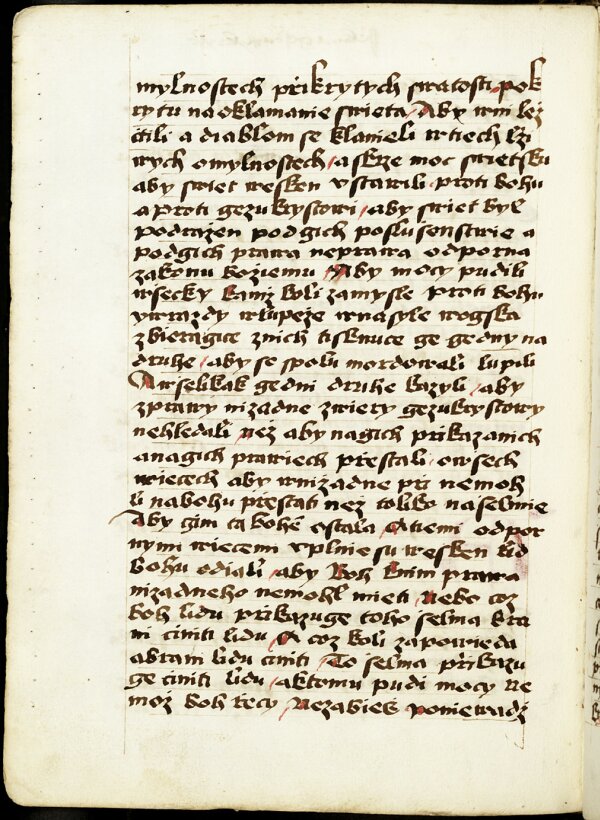 mylnostech přikrytych swatosti pok
rytu na oklamanie swieta / Aby wni lež
čtili a diablom se klanieli w tiech lži
wych omylnostech / a skrze moc swietsku
aby swiet wesken vstawili proti bohu
a proti gezukrystowi / aby swiet byl
podražen pod gich poslussenstwie a
pod gich prawa neprawa odporna
zakonu božiemu / Aby mocy pudili
wsecky kamž koli zamysle proti bohu
w wrazdy w lupeže w nasyle wogska
zbieragice z nich tisknuce ge gedny na
druhe / aby se spolu mordowali lupili
A wselikak gedni druhe kazyli / aby
zprawy nizadne z wiery gezukrystowy
nehledali / než aby na gich prikazanich
a na gich prawiech přestali / o wsech
wiecech aby w nižadne při nemoh
li na bohu přestati než toliko na selmie
Aby gim ta bohem ostala / A tiemi odpor
nymi wiecemi vplnie su wesken lid
bohu odiali / aby boh k nim prawa
nizadneho nemohl mieti / Nebo coz
boh lidu přikazuge toho selma bra
ni činiti lidu / A coz koli zapowieda
a brani lidu činiti / To selma přikazu
ge činiti lidu / a k tomu pudi mocy Ne
mož boh řecy / Nezabies poniewadž